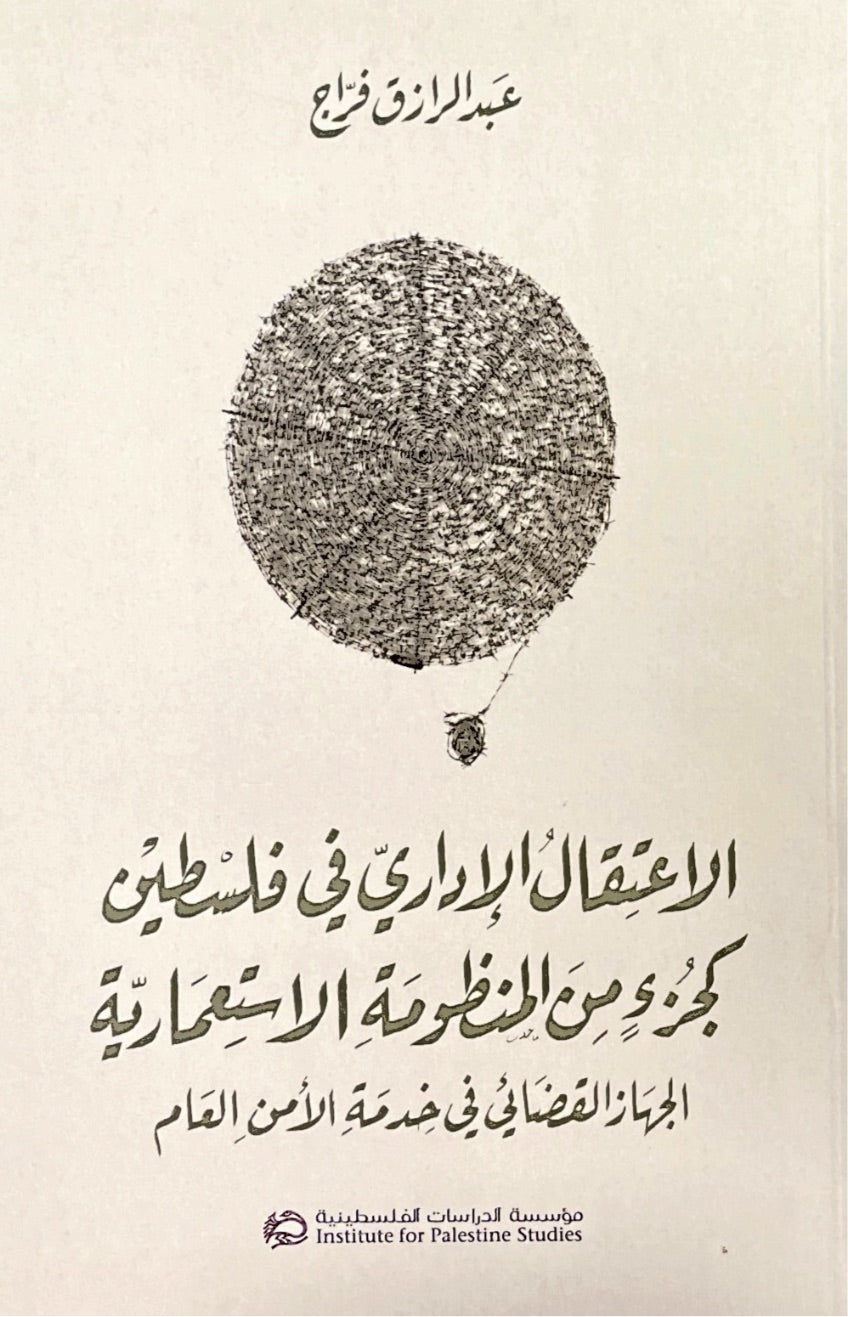 عَبد الرازق فرّاج
الاعتِقالُ الإداريّ في فلسْطيْن
كجُزءٍ مِنَ المنظومَةِ الاستِعمَاريّة
الجهَاز القضَائي في خِدمَةِ الأمن العَام
مؤسسة الدراسات الفلسطينية
Institute for Palestine Studies